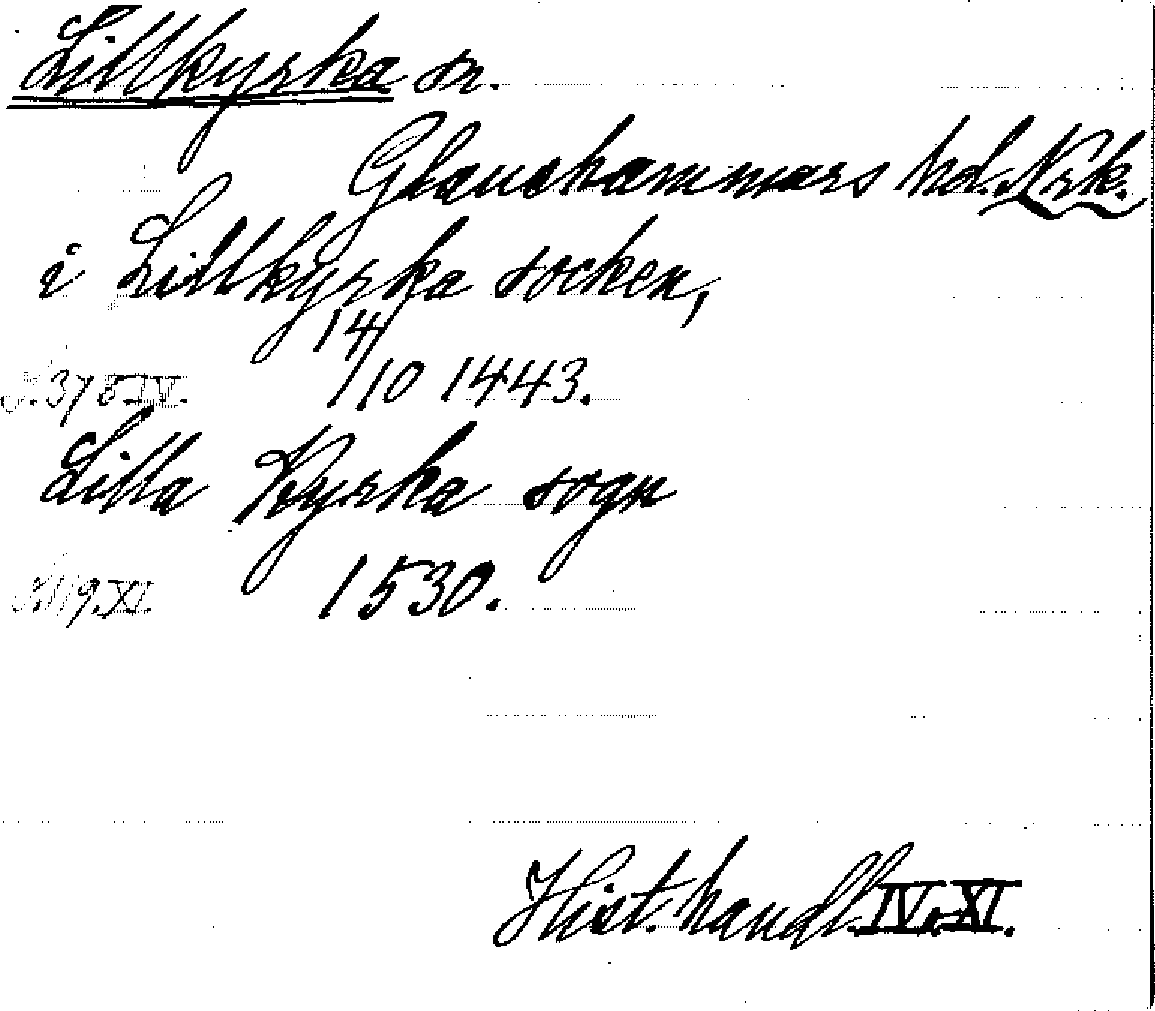 Lillkyrka sn.
Glanshammars hd. Nrk.
i Lillkyrka socken,
14/10 1443.
S. 378 IV.
Lilla Kyrka sogn
1530.
S. 119. XI.
Hist. handl. IV. XI.